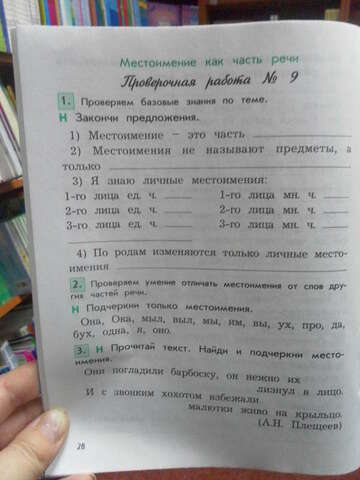 Местоимение как часть речи
Проверочная работа № 9
1. Проверяем базовые знания по теме.
Н Закончи предложения.
1) Местоимение – это часть
2) Местоимения не называют предметы, а
только
3) Я знаю личные местоимения:
1-го лица ед. ч. 1-го лица мн. ч.
2-го лица ед. ч. 2-го лица мн. ч.
3-го лица ед. ч. 3-го лица мн. ч.
4) По родам изменяются только личные место-
имения
2. Проверяем умение отличать местоимения от слов дру-
гих частей речи.
Н Подчеркни только местоимения.
Она, Ока, мыл, выл, мы, им, вы, ух, про, да,
бух, одна, я, оно.
3. Н Прочитай текст. Найди и подчеркни место-
имения.
Они погладили барбоску, он нежно их
лизнул в лицо.
И с звонким хохотом взбежали
малютки живо на крыльцо.
(А.Н. Плещеев)
28